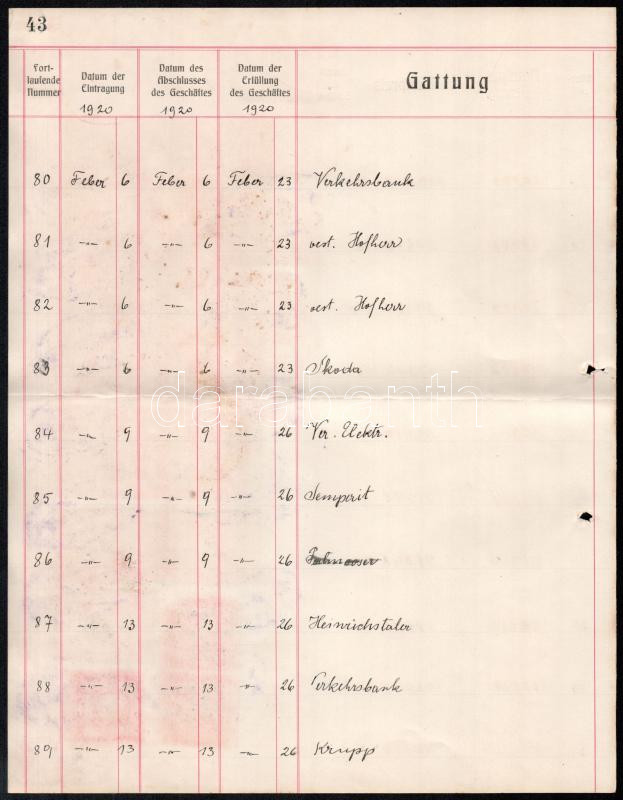 43
Fort-
laufende
Nummer
Datum der
Eintragung
1920
Datum des
Abschlusses
des Geschäftes
1920
Datum der
Erfüllung
des Geschäftes
1920
Gattung
80 Feber 6 Feber 6 Feber 23 Verkehrsbank
81 —„— 6 —„— 6 —„— 23 oest. Hofherr
82 —„— 6 —„— 6 —„— 23 oest. Hofherr
83 —„— 6 —„— 6 —„— 23 Skoda
84 —„— 9 —„— 9 —„— 26 Ver. Elektr.
85 —„— 9 —„— 9 —„— 26 Semperit
86 —„— 9 —„— 9 —„— 26
87 —„— 13 —„— 13 —„— 26 Heinrichstaler
88 —„— 13 —„— 13 —„— 26 Verkehrsbank
89 —„— 13 —„— 13 —„— 26 Krupp
darabanth